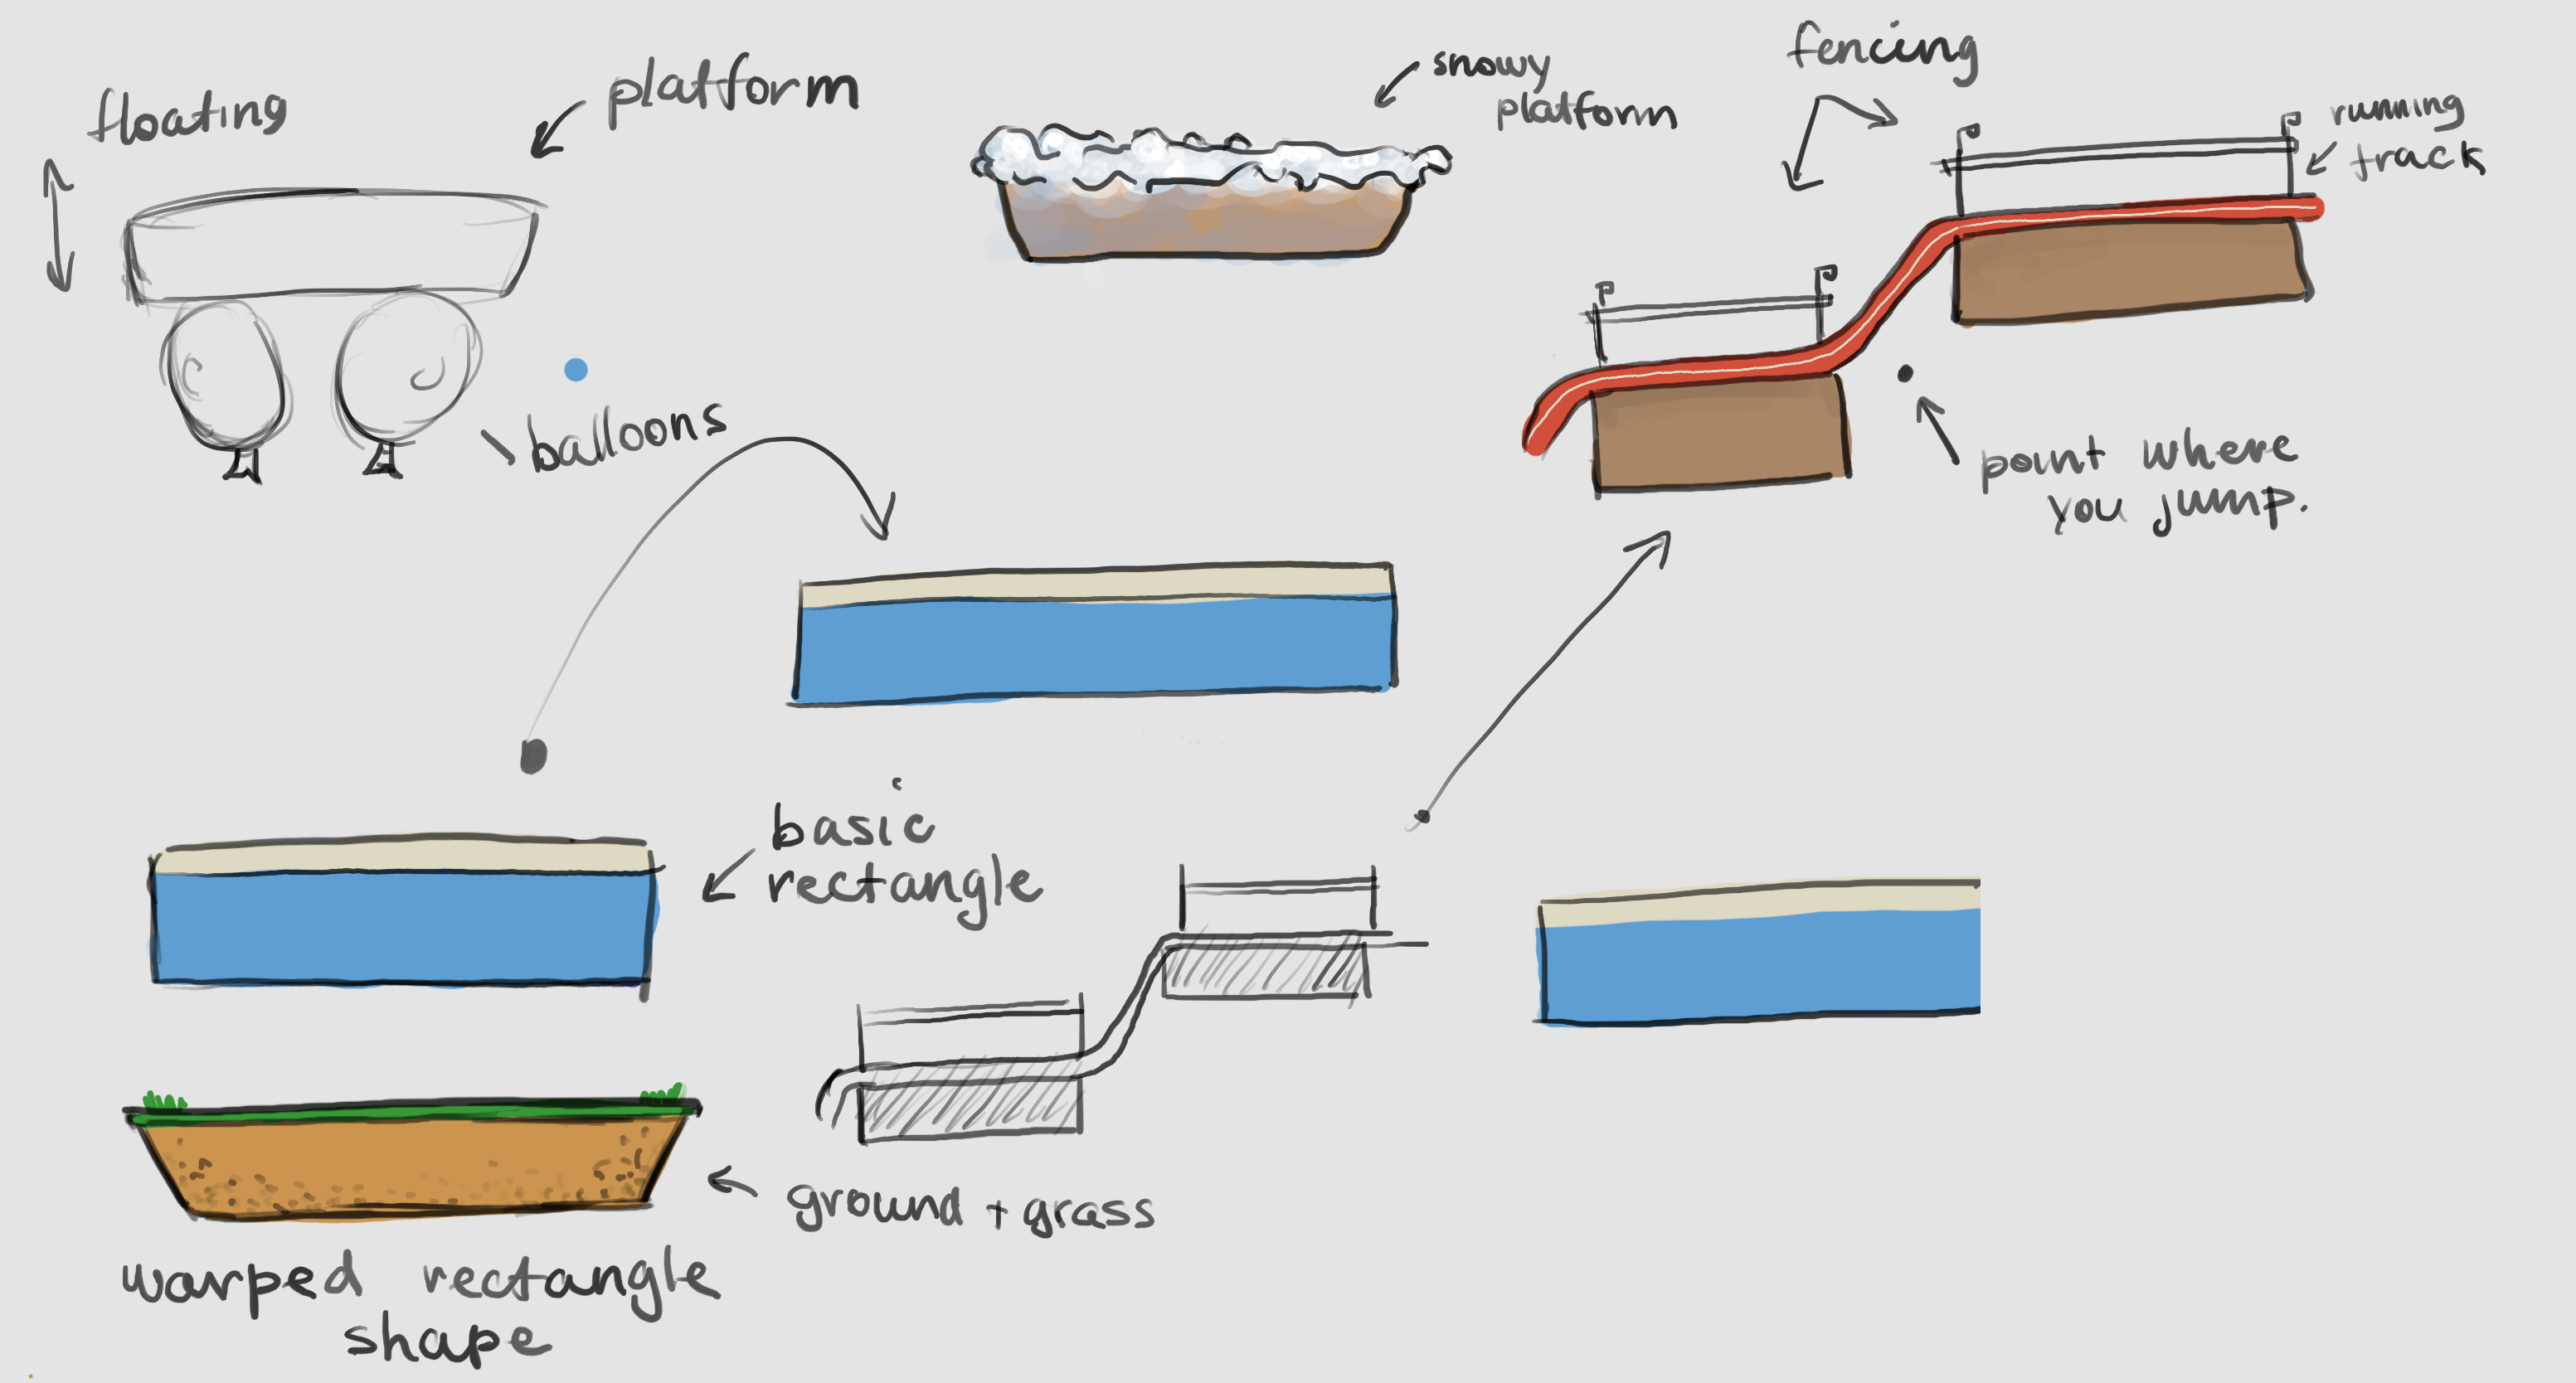 floating
platform
balloons
snowy
platform
fencing
running
track
point where
you jump.
basic
rectangle
ground + grass
warped rectangle
shape